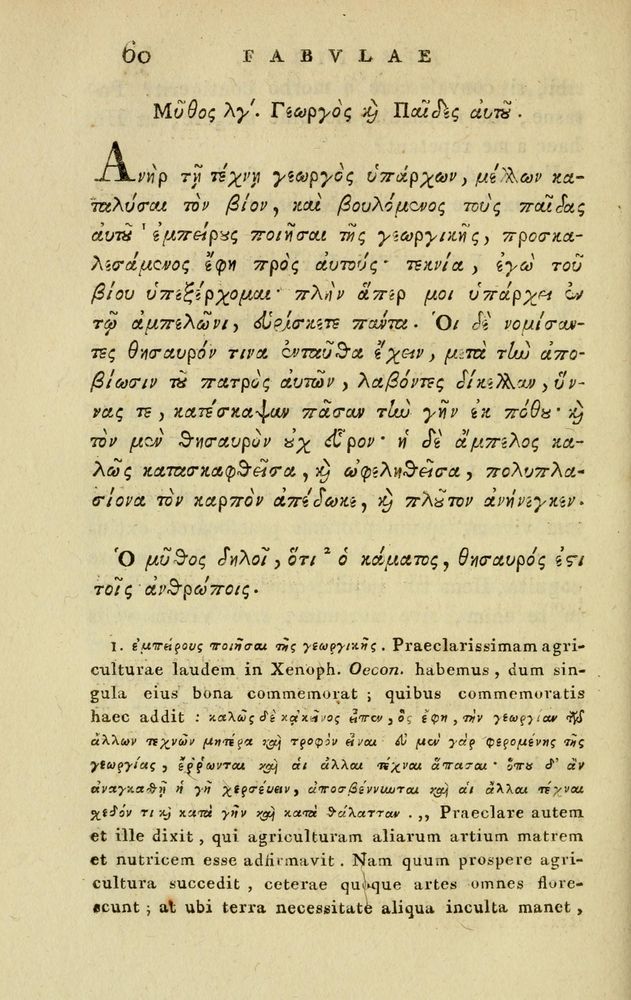 60 FABVLAE
Μῦθος λγʹ. Γεωργὸς ϗ Παῖδες ἀυτοῦ.
Ἀνὴρ τῇ τέχνῃ γεωργὸς ὑπάρχων, μέλλων κα-
ταλύσαι τὸν βίον, καὶ βουλόμενος τοὺς παῖδας
ἀυτοῦ ¹ ἐμπείρους ποιῆσαι τῆς γεωργικῆς, προσκα-
λεσάμενος ἔφη πρὸς ἀυτούς· τεκνία, ἐγὼ τοῦ
βίου ὑπεξέρχομαι· πλὴν ἅπερ μοι ὑπάρχει ἐν
τῷ ἀμπελῶνι, ἑυρίσκετε πάντα. Ὁι δὲ νομίσαν-
τες θησαυρόν τινα ἐνταῦθα ἔχειν, μετὰ τὴν ἀπο-
βίωσιν τοῦ πατρὸς ἀυτῶν, λαβόντες δίκελλαν, ὕν-
νας τε, κατέσκαψαν πᾶσαν τὴν γῆν ἐκ πόθου· ϗ
τὸν μὲν θησαυρὸν οὐχ εὗρον· ἡ δὲ ἄμπελος κα-
λῶς κατασκαφθεῖσα, ϗ ὠφεληθεῖσα, πολυπλα-
σίονα τὸν καρπὸν ἀπέδωκε, ϗ πλοῦτον ἀνήνεγκεν.
Ὁ μῦθος δηλοῖ, ὅτι ² ὁ κάματος, θησαυρός ἐστι
τοῖς ἀνθρώποις.
1. ἐμπείρους ποιῆσαι τῆς γεωργικῆς. Praeclarissimam agri-
culturae laudem in Xenoph. Oecon. habemus, dum sin-
gula eius bona commemorat; quibus commemoratis
haec addit: καλῶς δὲ κἀκεῖνος εἶπεν, ὃς ἔφη, τὴν γεωργίαν τῶν
ἄλλων τεχνῶν μητέρα καὶ τροφὸν εἶναι· εὖ μὲν γὰρ φερομένης τῆς
γεωργίας, ἔῤῥωνται καὶ ἁι ἄλλαι τέχναι ἅπασαι· ὅπου δ' ἂν
ἀναγκαθῇ ἡ γῆ χερσέυειν, ἀποσβέννυνται καὶ ἁι ἄλλαι τέχναι
σχεδόν τι ϗ κατὰ γῆν καὶ κατὰ θάλατταν. „ Praeclare autem
et ille dixit, qui agriculturam aliarum artium matrem
et nutricem esse adfirmavit. Nam quum prospere agri-
cultura succedit, ceterae quoque artes omnes flore-
scunt; at ubi terra necessitate aliqua inculta manet,